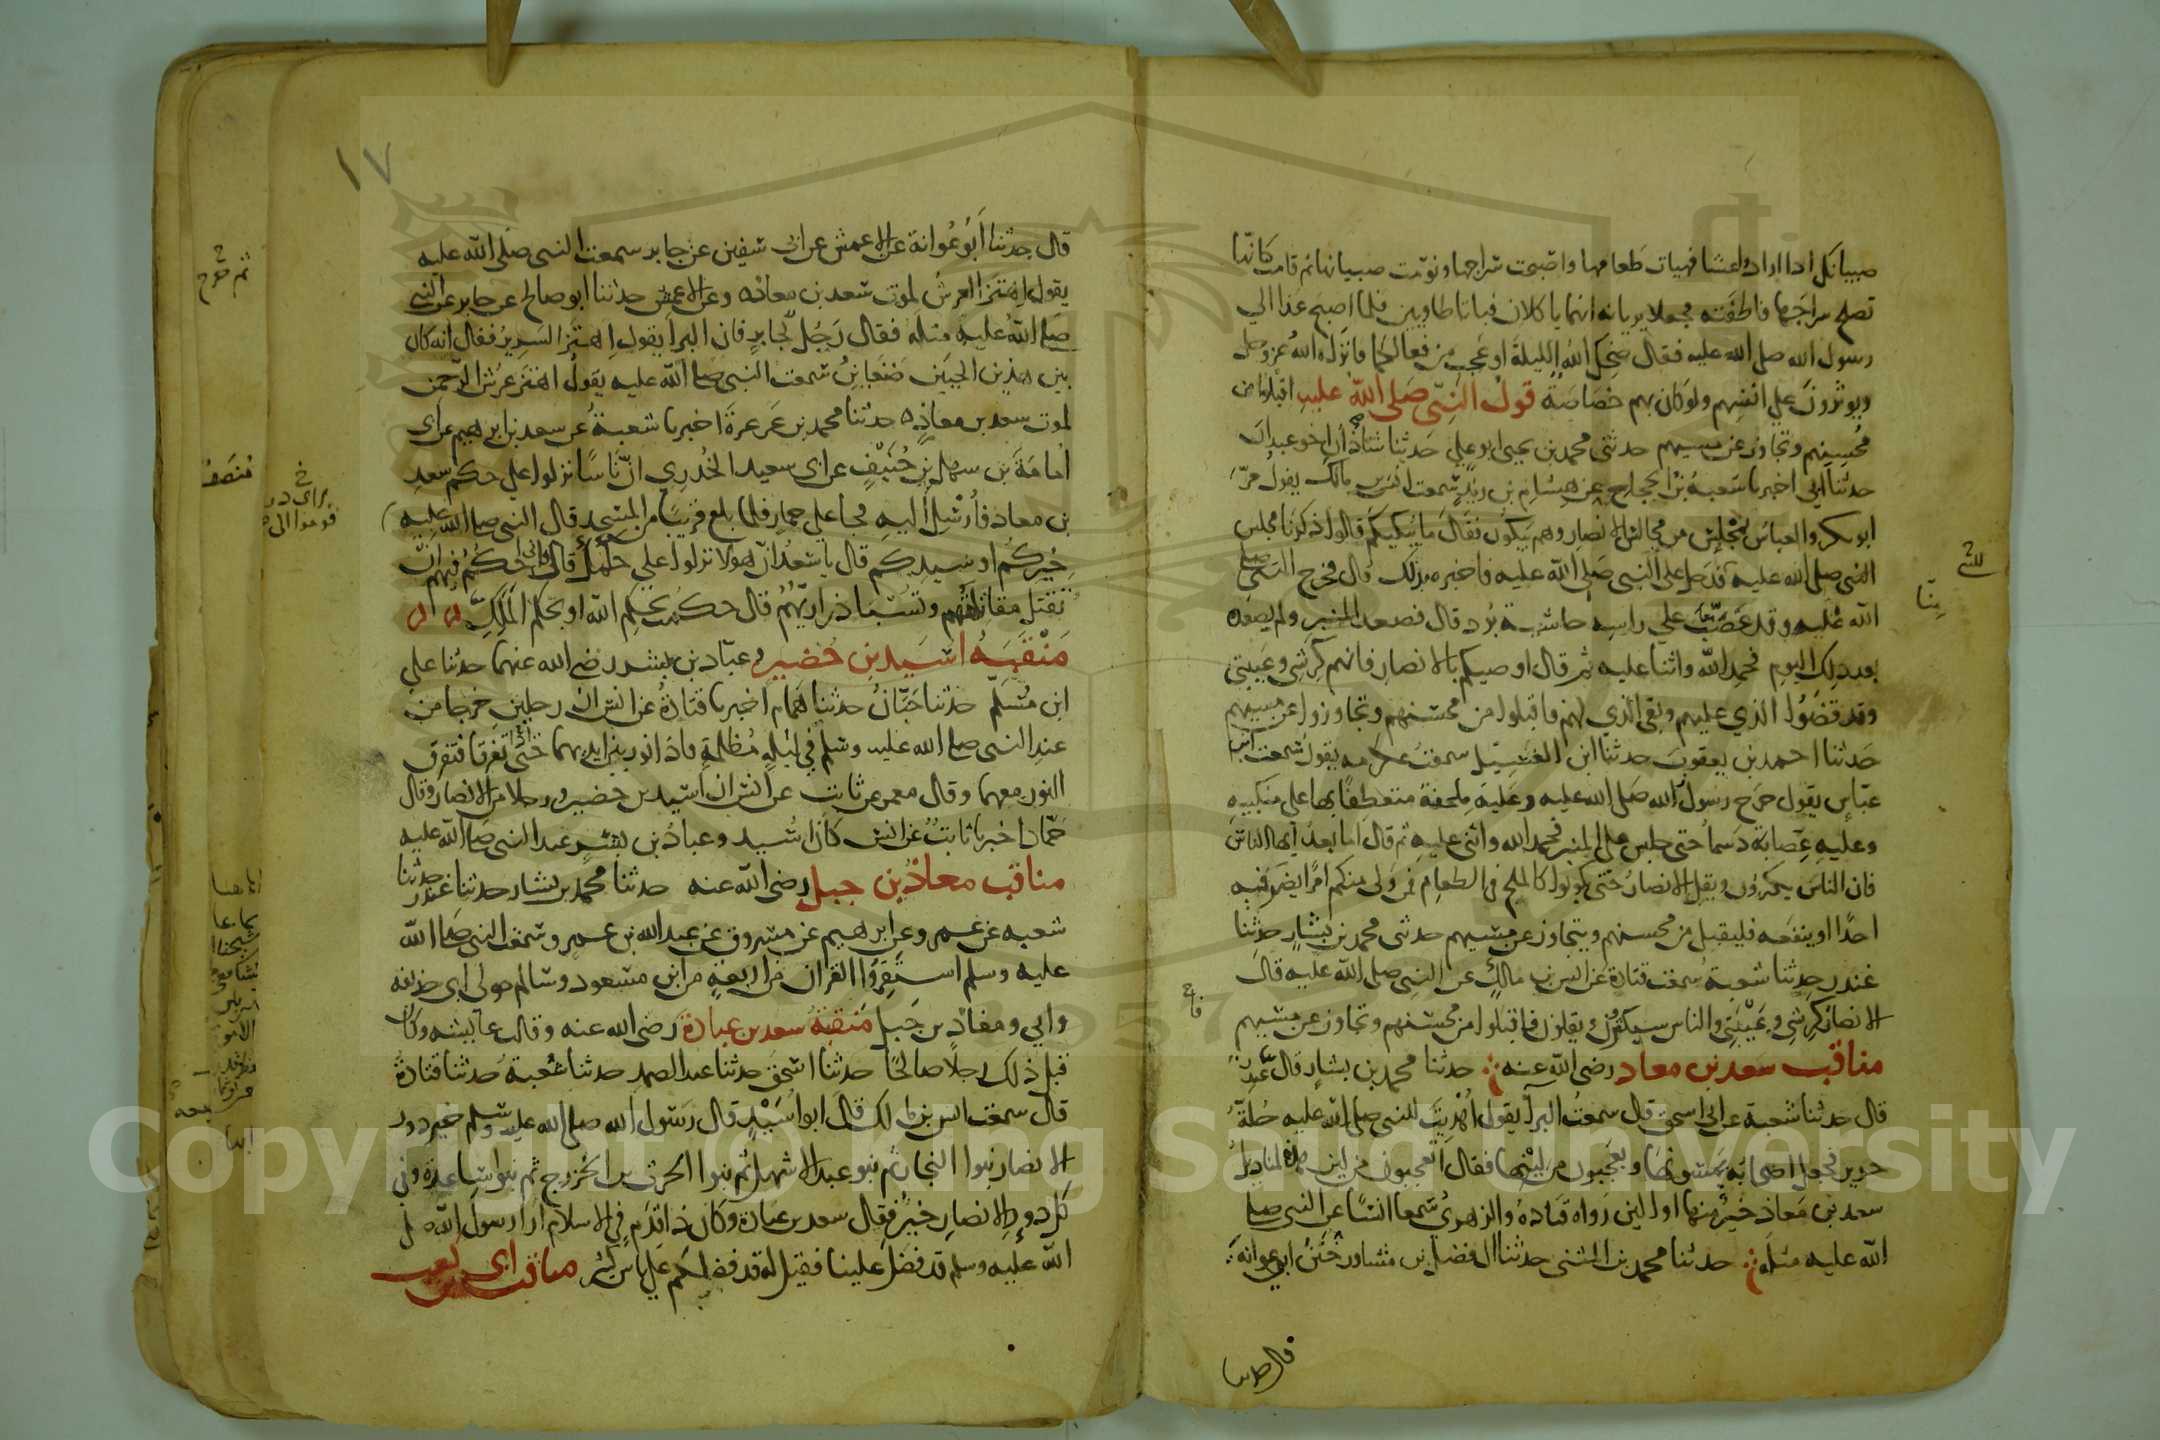 صبيانكل اذا ارادوا عشا فهيات طعامها واصبحت سراجها ونومت صبيانها ثم قامت كانها
تصلح سراجها فاطفته فجعلا يريانه انهما ياكلان فباتا طاويين فلما اصبح غدا الي
رسول الله صلى الله عليه فقال ضحك الله الليلة او عجب من فعالكما فانزل الله عز وجل
ويوثرون علي انفسهم ولو كان بهم خصاصة قول النبي صلى الله عليه اقبلوا من
محسنهم وتجاوزوا عن مسيهم حدثني محمد بن يحيى ابو علي حدثنا شاذان اخو عبدان
حدثنا ابي اخبرنا شعبة بن الحجاج عن هشام بن زيد سمعت انس بن مالك يقول مر
ابو بكر والعباس بمجلس من مجالس الانصار وهم يبكون فقال ما يبكيكم قالوا ذكرنا مجلس
النبي صلى الله عليه فدخل على النبي صلى الله عليه فاخبره بذلك قال فخرج النبي صلى
الله عليه وقد عصب علي راسه حاشية برد قال فصعد المنبر ولم يصعده
بعد ذلك اليوم فحمد الله واثنا عليه ثم قال اوصيكم بالانصار فانهم كرشي وعيبتي
وقد قضوا الذي عليهم وبقي الذي لهم فاقبلوا من محسنهم وتجاوزوا عن مسيهم
حدثنا احمد بن يعقوب حدثنا ابن الغسيل سمعت عكرمه يقول سمعت ابن
عباس يقول خرج رسول الله صلى الله عليه وعليه ملحفة متعطفا بها على منكبيه
وعليه عصابة دسما حتى جلس على المنبر فحمد الله واثنى عليه ثم قال اما بعد ايها الناس
فان الناس يكثرون ويقل الانصار حتى يكونوا كالملح في الطعام فمن ولى منكم امرا يضر فيه
احدا او ينفعه فليقبل من محسنهم ويتجاوز عن مسيهم حدثني محمد بن بشار حدثنا
غندر حدثنا شعبة سمعت قتادة عن انس بن مالك عن النبي صلى الله عليه قال
الانصار كرشي وعيبتي والناس سيكثرون ويقلون فاقبلوا من محسنهم وتجاوز عن مسيهم
مناقب سعد بن معاذ رضى الله عنه حدثنا محمد بن بشار قال غندر
قال حدثنا شعبة عن ابي اسحق قال سمعت البرآ يقول اهديت للنبي صلى الله عليه حلة
حرير فجعل اصحابه يمسونها ويعجبون من لينها فقال اتعجبون من لين هذه لمناديل
سعد بن معاذ خير منها او الين رواه قتادة والزهري سمعا انسا عن النبي صلى
الله عليه مثله حدثنا محمد بن المثنى حدثنا الفضل بن مساور ختن ابي عوانة
قال حدثنا
١٧
قال حدثنا ابو عوانة عن الاعمش عن ابي سفين عن جابر سمعت النبي صلى الله عليه
يقول اهتز العرش لموت سعد بن معاذ وعن الاعمش حدثنا ابو صالح عن جابر عن النبي
صلى الله عليه مثله فقال رجل لجابر فان البرا يقول اهتز السرير فقال انه كان
بين هذين الحيين ضغاين سمعت النبي صلى الله عليه يقول اهتز عرش الرحمن
لموت سعد بن معاذ حدثنا محمد بن عرعرة اخبرنا شعبة عن سعد بن ابرهيم عن ابي
امامة بن سهل بن حنيف عن ابي سعيد الخدري ان ناسا نزلوا علي حكم سعد
بن معاذ فارسل اليه فجا على حمار فلما بلغ قريبا من المسجد قال النبي صلى الله عليه
خيركم او سيدكم قال يا سعد ان هولا نزلوا علي حكمك قال فاني احكم فيهم ان
تقتل مقاتلتهم وتسبا ذراريهم قال حكمت بحكم الله او بحكم الملك
منقبه اسيد بن حضير وعباد بن بشر رضي الله عنهما حدثنا علي
ابن مسلم حدثنا حبان حدثنا همام اخبرنا قتادة عن انس ان رجلين خرجا من
عند النبي صلى الله عليه وسلم في ليله مظلمة فاذا نور بين ايديهما حتى تفرقا فتفرق
النور معهما وقال معمر عن ثابت عن انس ان اسيد بن حضير ورجلا من الانصار وقال
حماد اخبرنا ثابت عن انس كان اسيد وعباد بن بشر عند النبي صلى الله عليه
مناقب معاذ بن جبل رضى الله عنه حدثنا محمد بن بشار حدثنا غندر حدثنا
شعبه عن عمرو عن ابرهيم عن مسروق عن عبد الله بن عمرو سمعت النبي صلى الله
عليه وسلم استقروا القران من اربعة من ابن مسعود وسالم مولى ابي حذيفه
وابي ومعاذ بن جبل منقبة سعد بن عبادة رضى الله عنه وقالت عايشه وكان
قبل ذلك رجلا صالحا حدثنا اسحق حدثنا عبد الصمد حدثنا شعبة حدثنا قتادة
قال سمعت انس بن مالك قال ابو اسيد قال رسول الله صلى الله عليه وسلم خير دور
الانصار بنوا النجار ثم بنو عبد الاشهل ثم بنوا الحرث بن الخزرج ثم بنوا ساعدة وفي
كل دور الانصار خير فقال سعد بن عبادة وكان ذا قدم في الاسلام ارا رسول الله
الله عليه وسلم قد فضل علينا فقيل له قد فضلكم علي ناس كثير مناقب ابي بن كعب
Copyright © King Saud University
1957